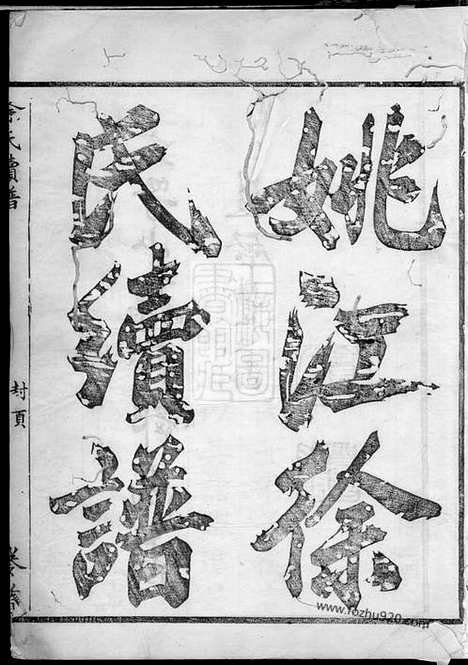 姚江徐
氏續譜
徐氏續譜
封頁
www.fozhu920.com